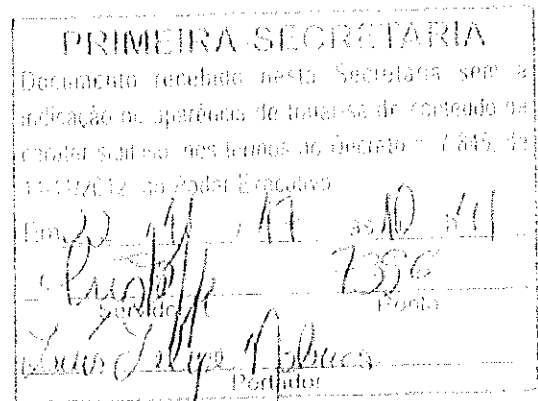 PRIMEIRA-SECRETARIA
Documento recebido nesta Secretaria sem a
indicação ou aparência de tratar-se de conteúdo de
caráter sigiloso, nos termos do Decreto n. 7.845, de
14/11/2012, do Poder Executivo
Em / 11 / 17 às 10 h 41
Servidor Ponto
Luis Felipe Nobuco
Portador